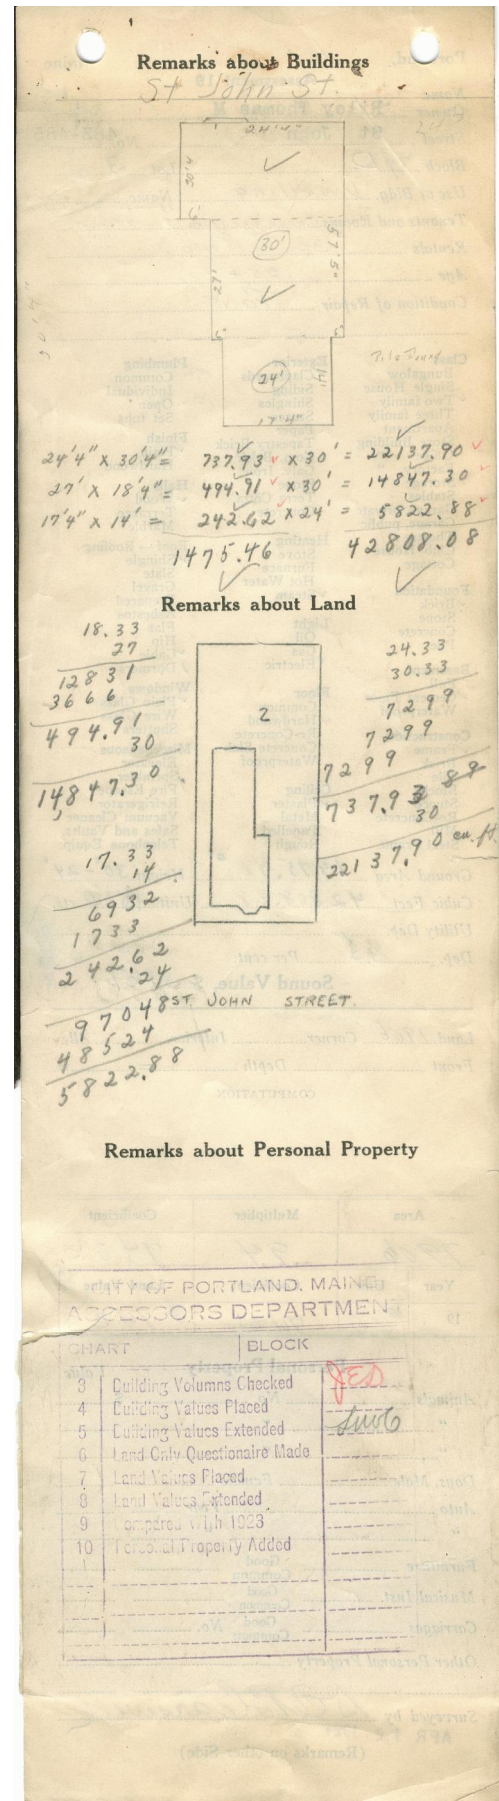 Remarks about Buildings
St John St.
24'4"
30'4
6'
30'
57'5"
27'
3'
3'
24'
14'
17'4"
24'4" x 30'4" = 737.93 x 30' = 22137.90
27' x 18'4" = 494.91 x 30' = 14847.30
17'4" x 14' = 242.62 x 24' = 5822.88
1475.46 42808.08
Remarks about Land
18.33
27
12831
3666
494.91
30
14847.30
17.33
14
6932
1733
242.62
24
97048
48524
5822.88
2
24.33
30.33
7299
7299
7299
737.93 89
30
22137.90 cu.ft.
ST. JOHN STREET.
Remarks about Personal Property
CITY OF PORTLAND, MAINE
ASSESSORS DEPARTMENT
CHART BLOCK
3 Building Volumns Checked JED
4 Building Values Placed
5 Building Values Extended
6 Land Only Questionaire Made
7 Land Values Placed
8 Land Values Extended
9 Compared With 1923
10 Personal Property Added